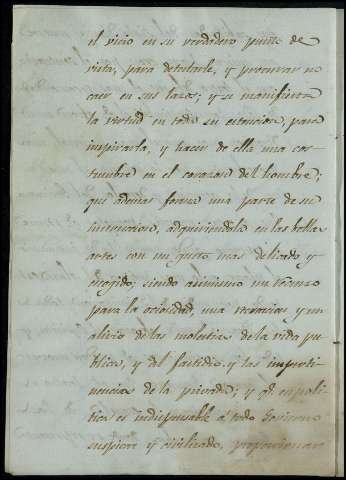 el vicio en su verdadero punto de
vista, para detestarle, y procurar no
caer en sus lazos; y se manifiesta
la virtud en toda su extencion, para
inspirarla, y hacer de ella una cos-
tumbre en el corazon del hombre;
que ademas forma una parte de su
instruccion, adquiriendola en las bellas
artes con un gusto mas delicado y
escojido; siendo asimismo un
para la ociosidad, una y un
alivio de las molestias de la vida pu-
blica, y del fastidio y las imperti-
nencias de la privada; y qe. en poli-
tica es indispensable á todo Govierno
y civilizado, proporcionar